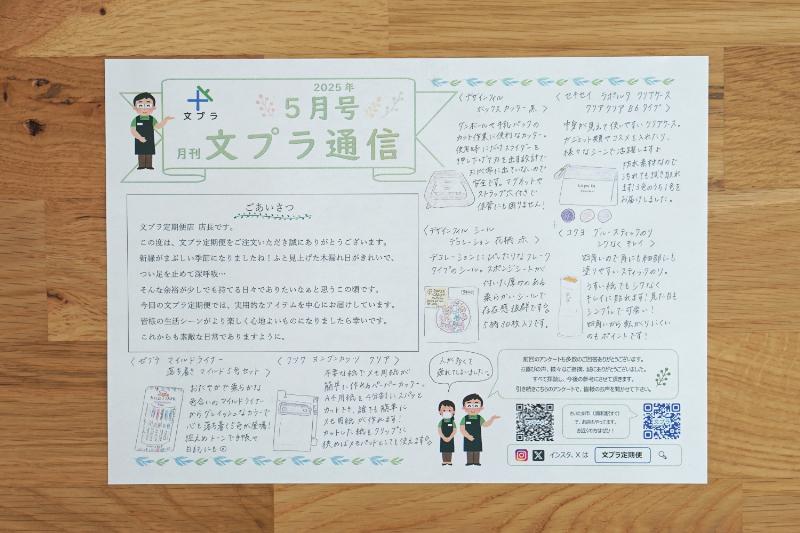 2025年
5月号
文プラ
月刊 文プラ通信
ごあいさつ
文プラ定期便店 店長です。
この度は、文プラ定期便をご注文いただき誠にありがとうございます。
新緑がまぶしい季節になりましたね！ふと見上げた木漏れ日がきれいで、
つい足を止めて深呼吸…
そんな余裕が少しでも持てる日々でありたいなぁと思うこの頃です。
今回の文プラ定期便では、実用的なアイテムを中心にお届けしています。
皆様の生活シーンがより楽しく心地よいものになりましたら幸いです。
これからも素敵な日常でありますように。
〈デザインフィル
ボックスカッター 黒〉
ダンボールや牛乳パックの
カット作業に便利なカッター。
使用時にだけスライダーを
押し下げて刃を出す設計で
安全です。マグネットや
ストラップ穴付きで
保管にも困りません！
〈セキセイ ラポルタ クリアケース
クリアクリア B6タイプ〉
中身が見えて使いやすいクリアケース。
ガジェット類やコスメを入れたり、
様々なシーンで活躍しますよ
防水素材なので
汚れても拭き取れ
ます！3色のうち1色を
お届けしました。
〈デザインフィル シール
デコレーション 花柄 赤〉
デコレーションにぴったりなフレーク
タイプのシール。スポンジシートが
付いた厚みのある
柔らかいシールで
存在感抜群です
5柄30枚入りです。
〈コクヨ グルー スティックのり
シワなくキレイ〉
四角いので角にも細部にも
塗りやすいスティックのり。
うすい紙でもシワなく
キレイに貼れます！見た目も
シンプルで可愛い！
四角いから転がりにくいの
もポイントです！
〈ゼブラ マイルドライナー
落ち着きマイルド5色セット〉
おだやかで柔らかな
色合いのマイルドライナー
からグレイッシュなカラーで
心も落ち着く5色が登場！
控えめトーンで手帳や
日記にも
不要な紙でメモ用紙が
簡単に作れるペーパーカッター。
A4用紙を4分割にスパッと
カットでき、誰でも簡単に
メモ用紙が作れます！
カットした紙をクリップに
挟めばメモパットとしても使えます
前回のアンケートも多数のご回答ありがとうございます。
お喜びの声、様々なご意見、誠にありがとうございました。
すべて拝読し、今後の参考にさせて頂きます。
引き続きこちらのアンケートで、皆様のお声を聞かせて下さい。
インスタ、X は
文プラ定期便